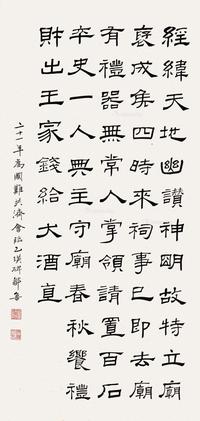 經緯天地幽讚神明故特立廟
褒成侯四時來祠事已即去廟
有禮器無常人掌領請置百石
卒史一人典主守廟春秋饗禮
財出王家錢給犬酒直
二十一年為國難共濟會臨乙瑛碑鄒魯